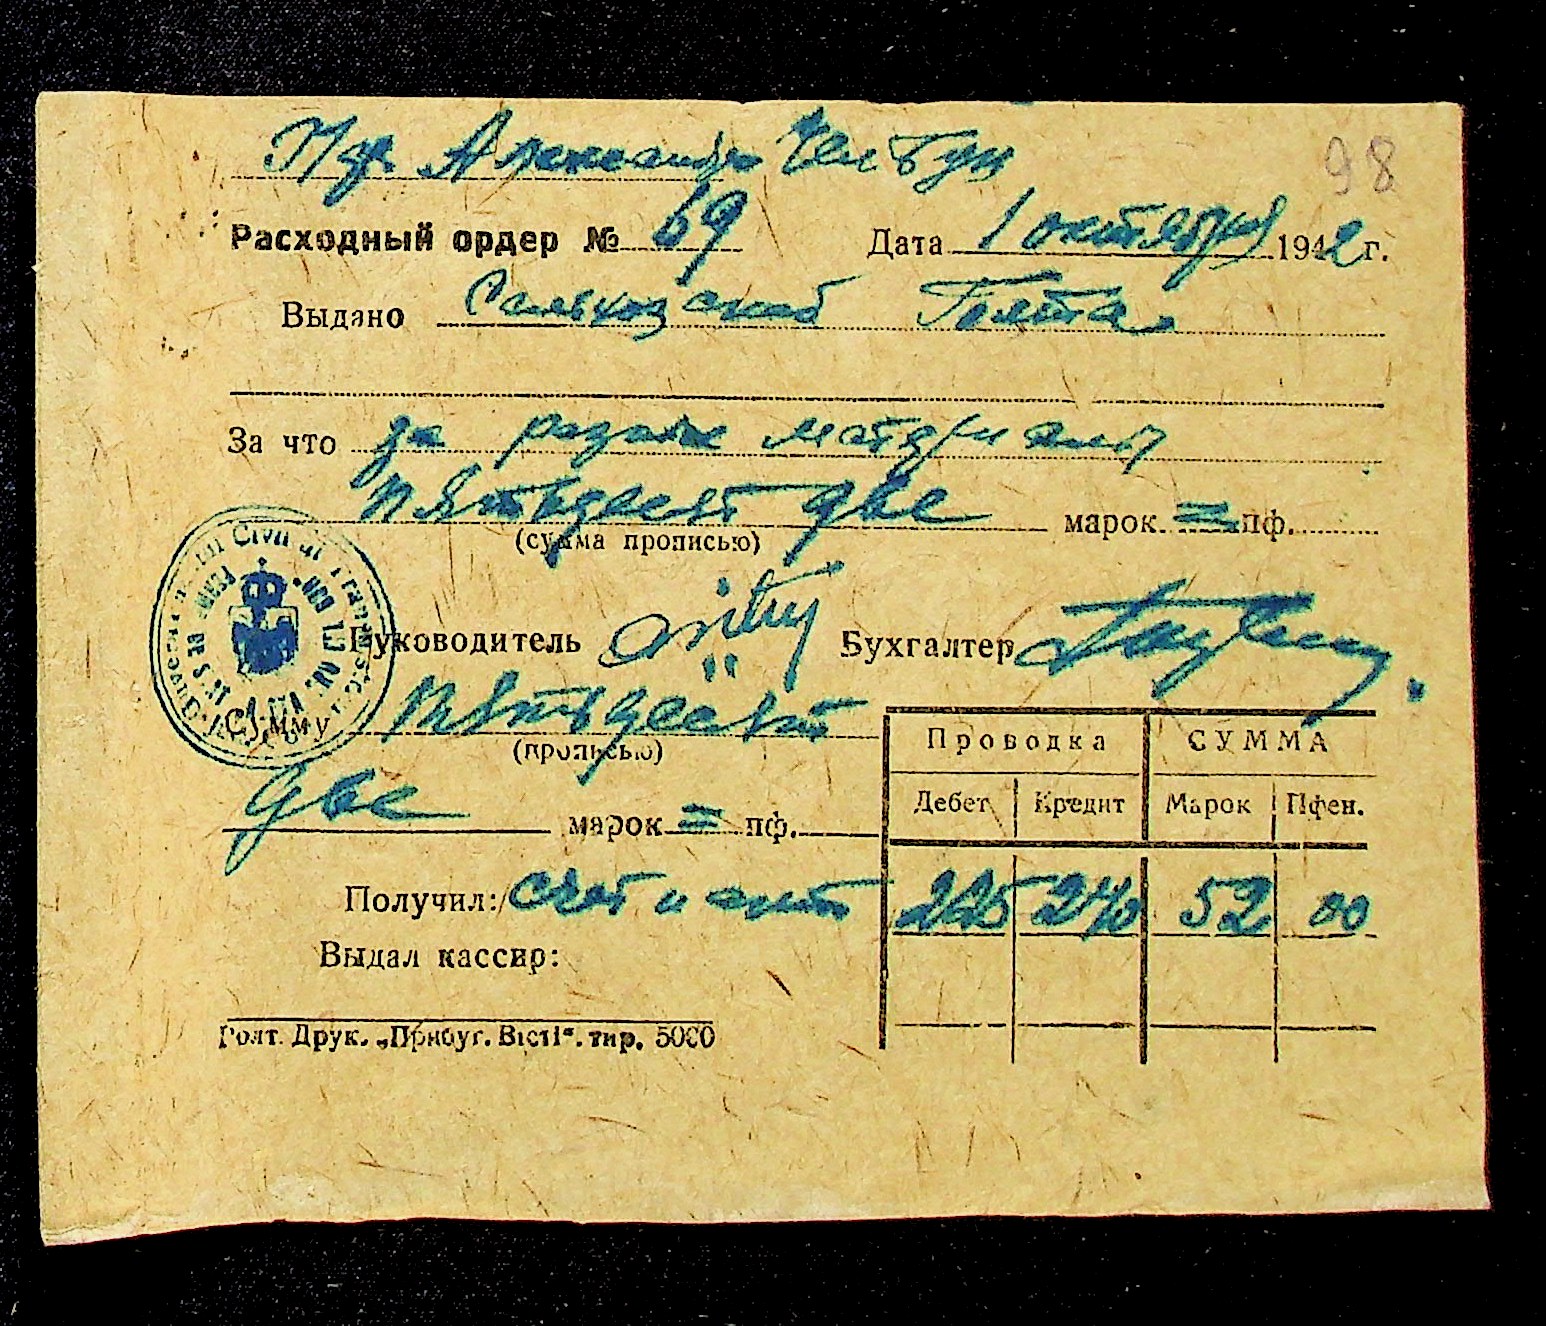 98
Расходный ордер № 69 Дата 1 октября 1942 г.
Выдано
За что за разные материалы
пятьдесят две марок = пф.
(сумма прописью)
Руководитель Бухгалтер
Сумму пятьдесят
(прописью)
две марок = пф.
Получил: счет и акт
Выдал кассир:
Проводка СУММА
Дебет Кредит Марок Пфен.
225 240 52 00
Голт. Друк. „Прибуг. Вісті“. тир. 5000